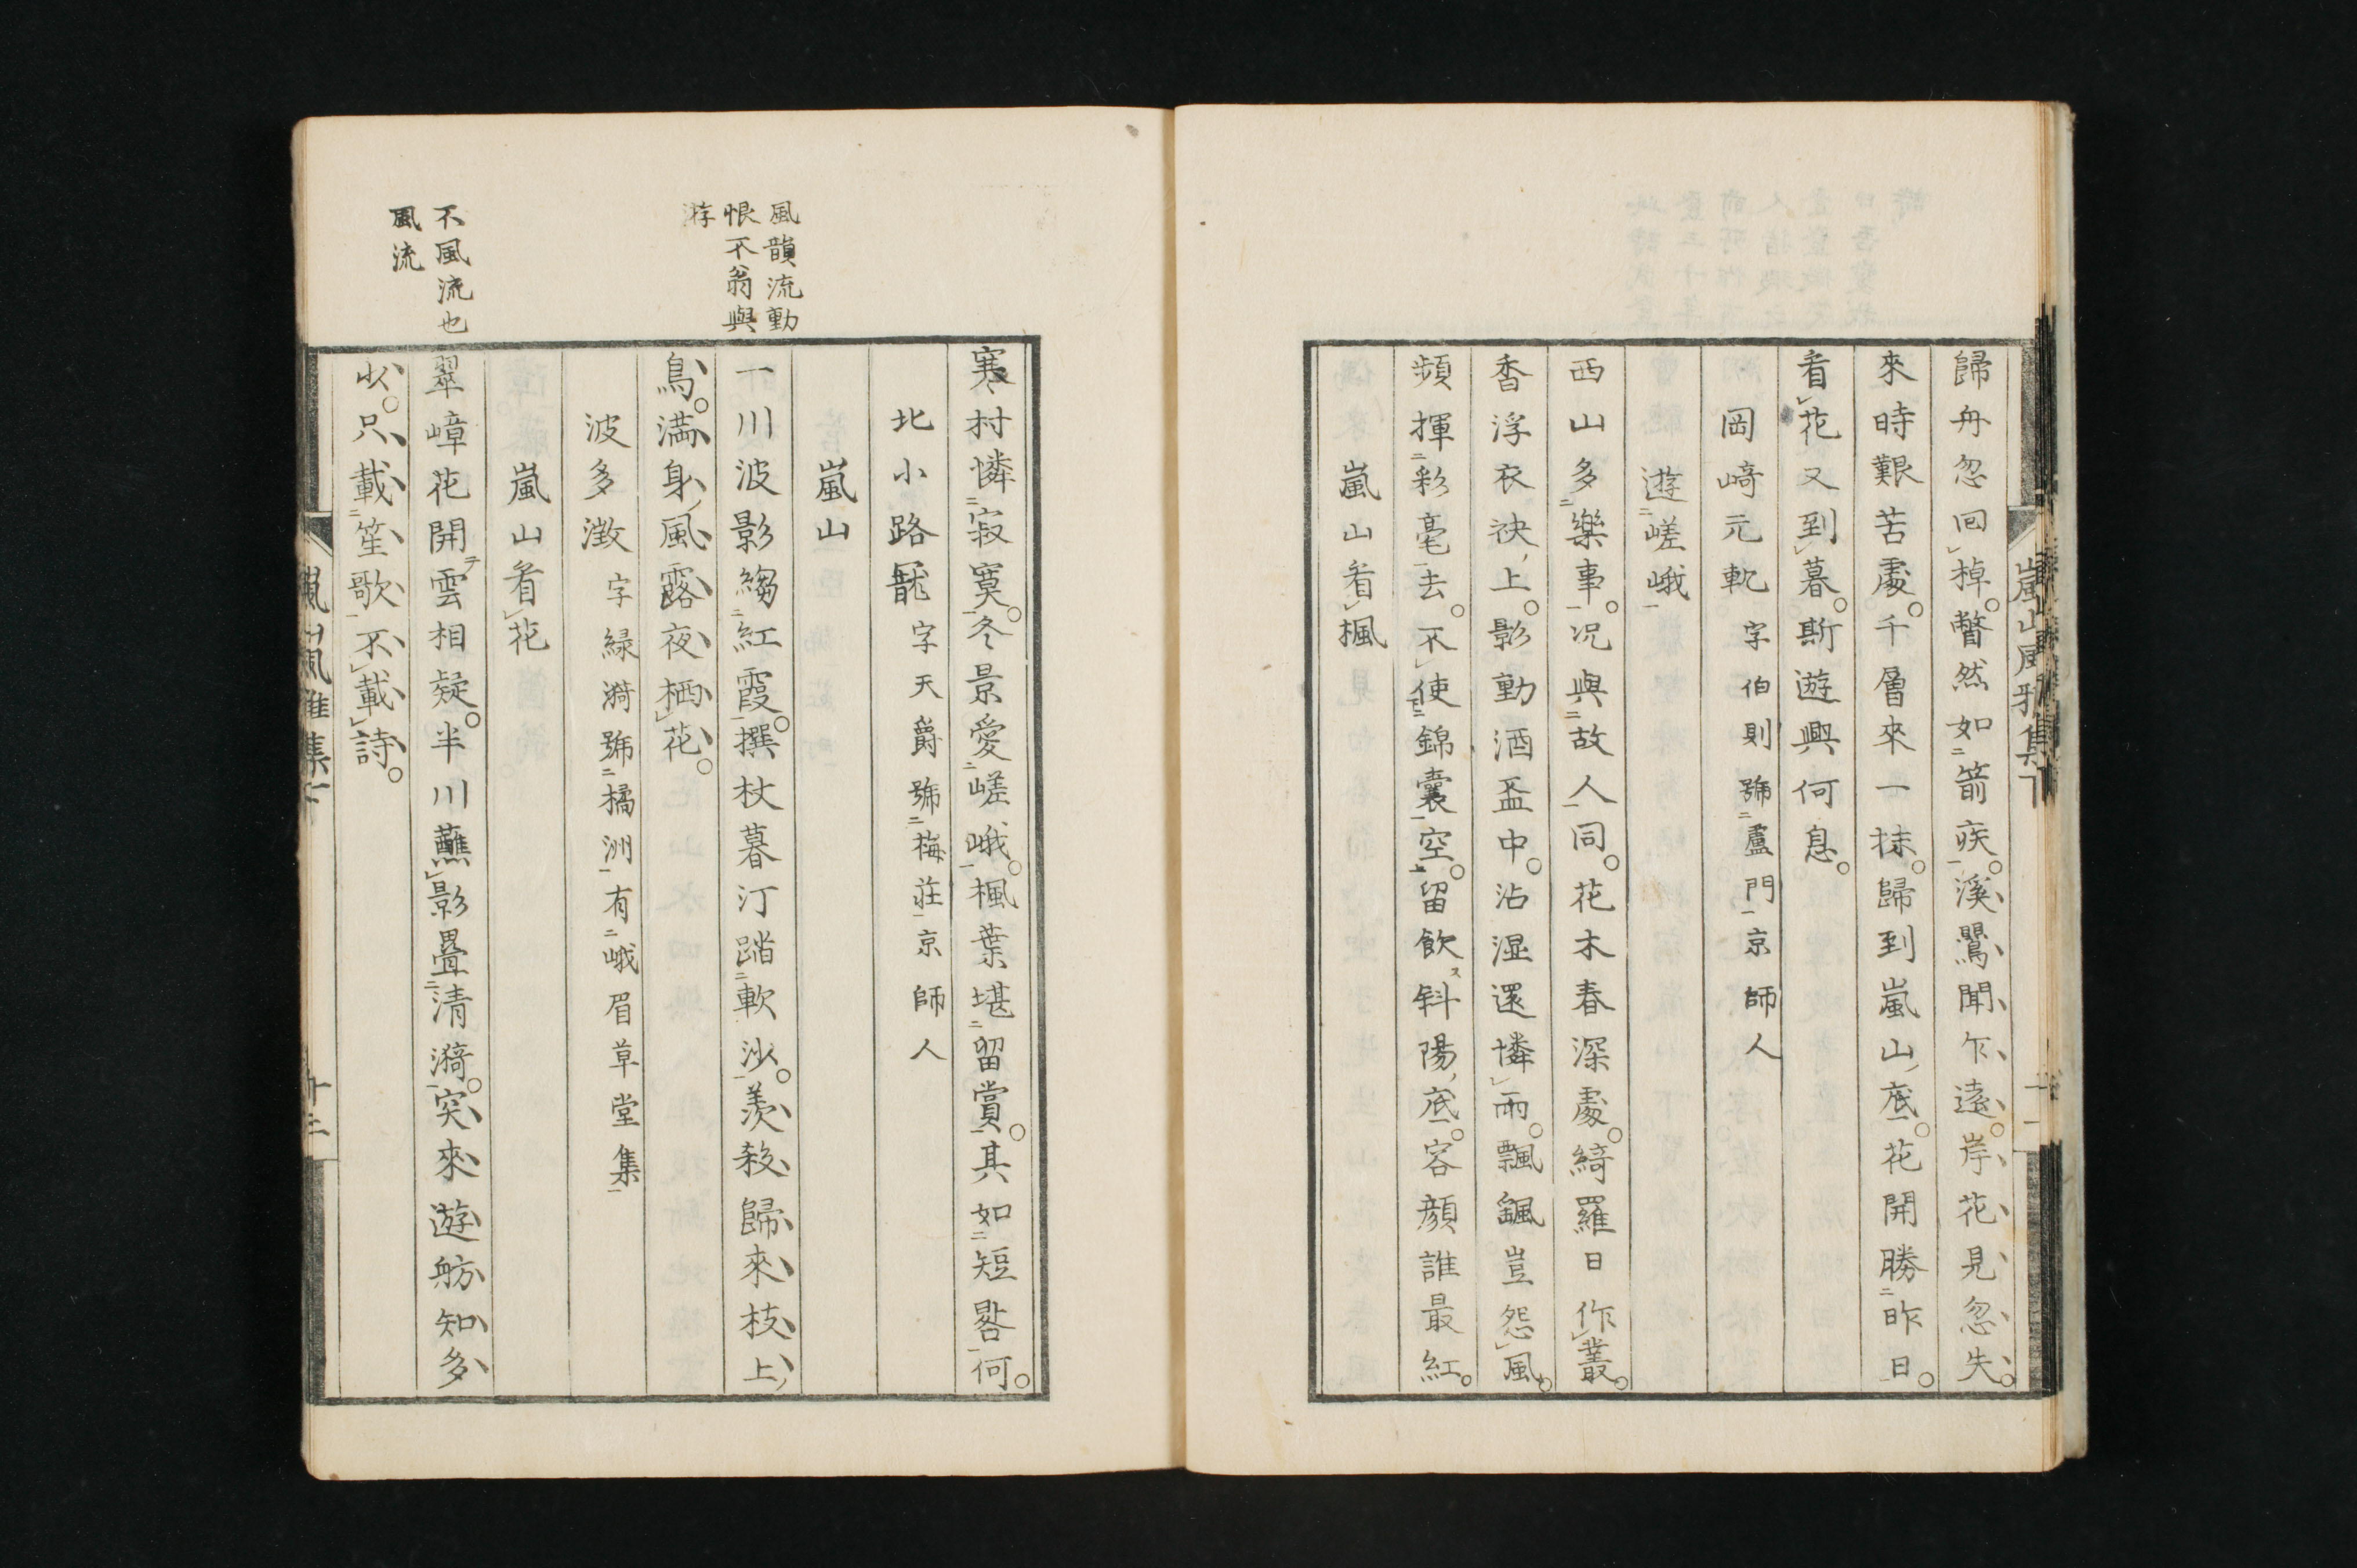 歸舟忽回掉瞥然如箭疾溪鸎聞乍遠岸花見忽失
來時艱苦處千層來一抹歸到嵐山底花開勝昨日
看花又到暮斯遊興何息
岡﨑元軏 字伯則號盧門京師人
遊嵯峨
西山多樂事况與故人同花木春深處綺羅日作叢
香浮衣袂上影動酒盃中沾湿還憐雨飄颻豈怨風
頻揮彩毫去不使錦囊空留飲斜陽底容顔誰最紅
嵐山看楓
風韻流動
恨不翁與
游
不風流也
風流
寒村憐寂寞冬景愛嵯峨楓葉堪留賞其如短晷何
北小路龍 字天爵號梅莊京師人
嵐山
一川波影縐紅霞撰杖暮汀踏軟沙羨殺歸來枝上
鳥滿身風露夜栖花
波多澂 字緑漪號橘洲有峨眉草堂集
嵐山看花
翠嶂花開雲相疑半川蘸影畳清漪突來遊舫知多
少只載笙歌不載詩
嵐山風雅集下
十二